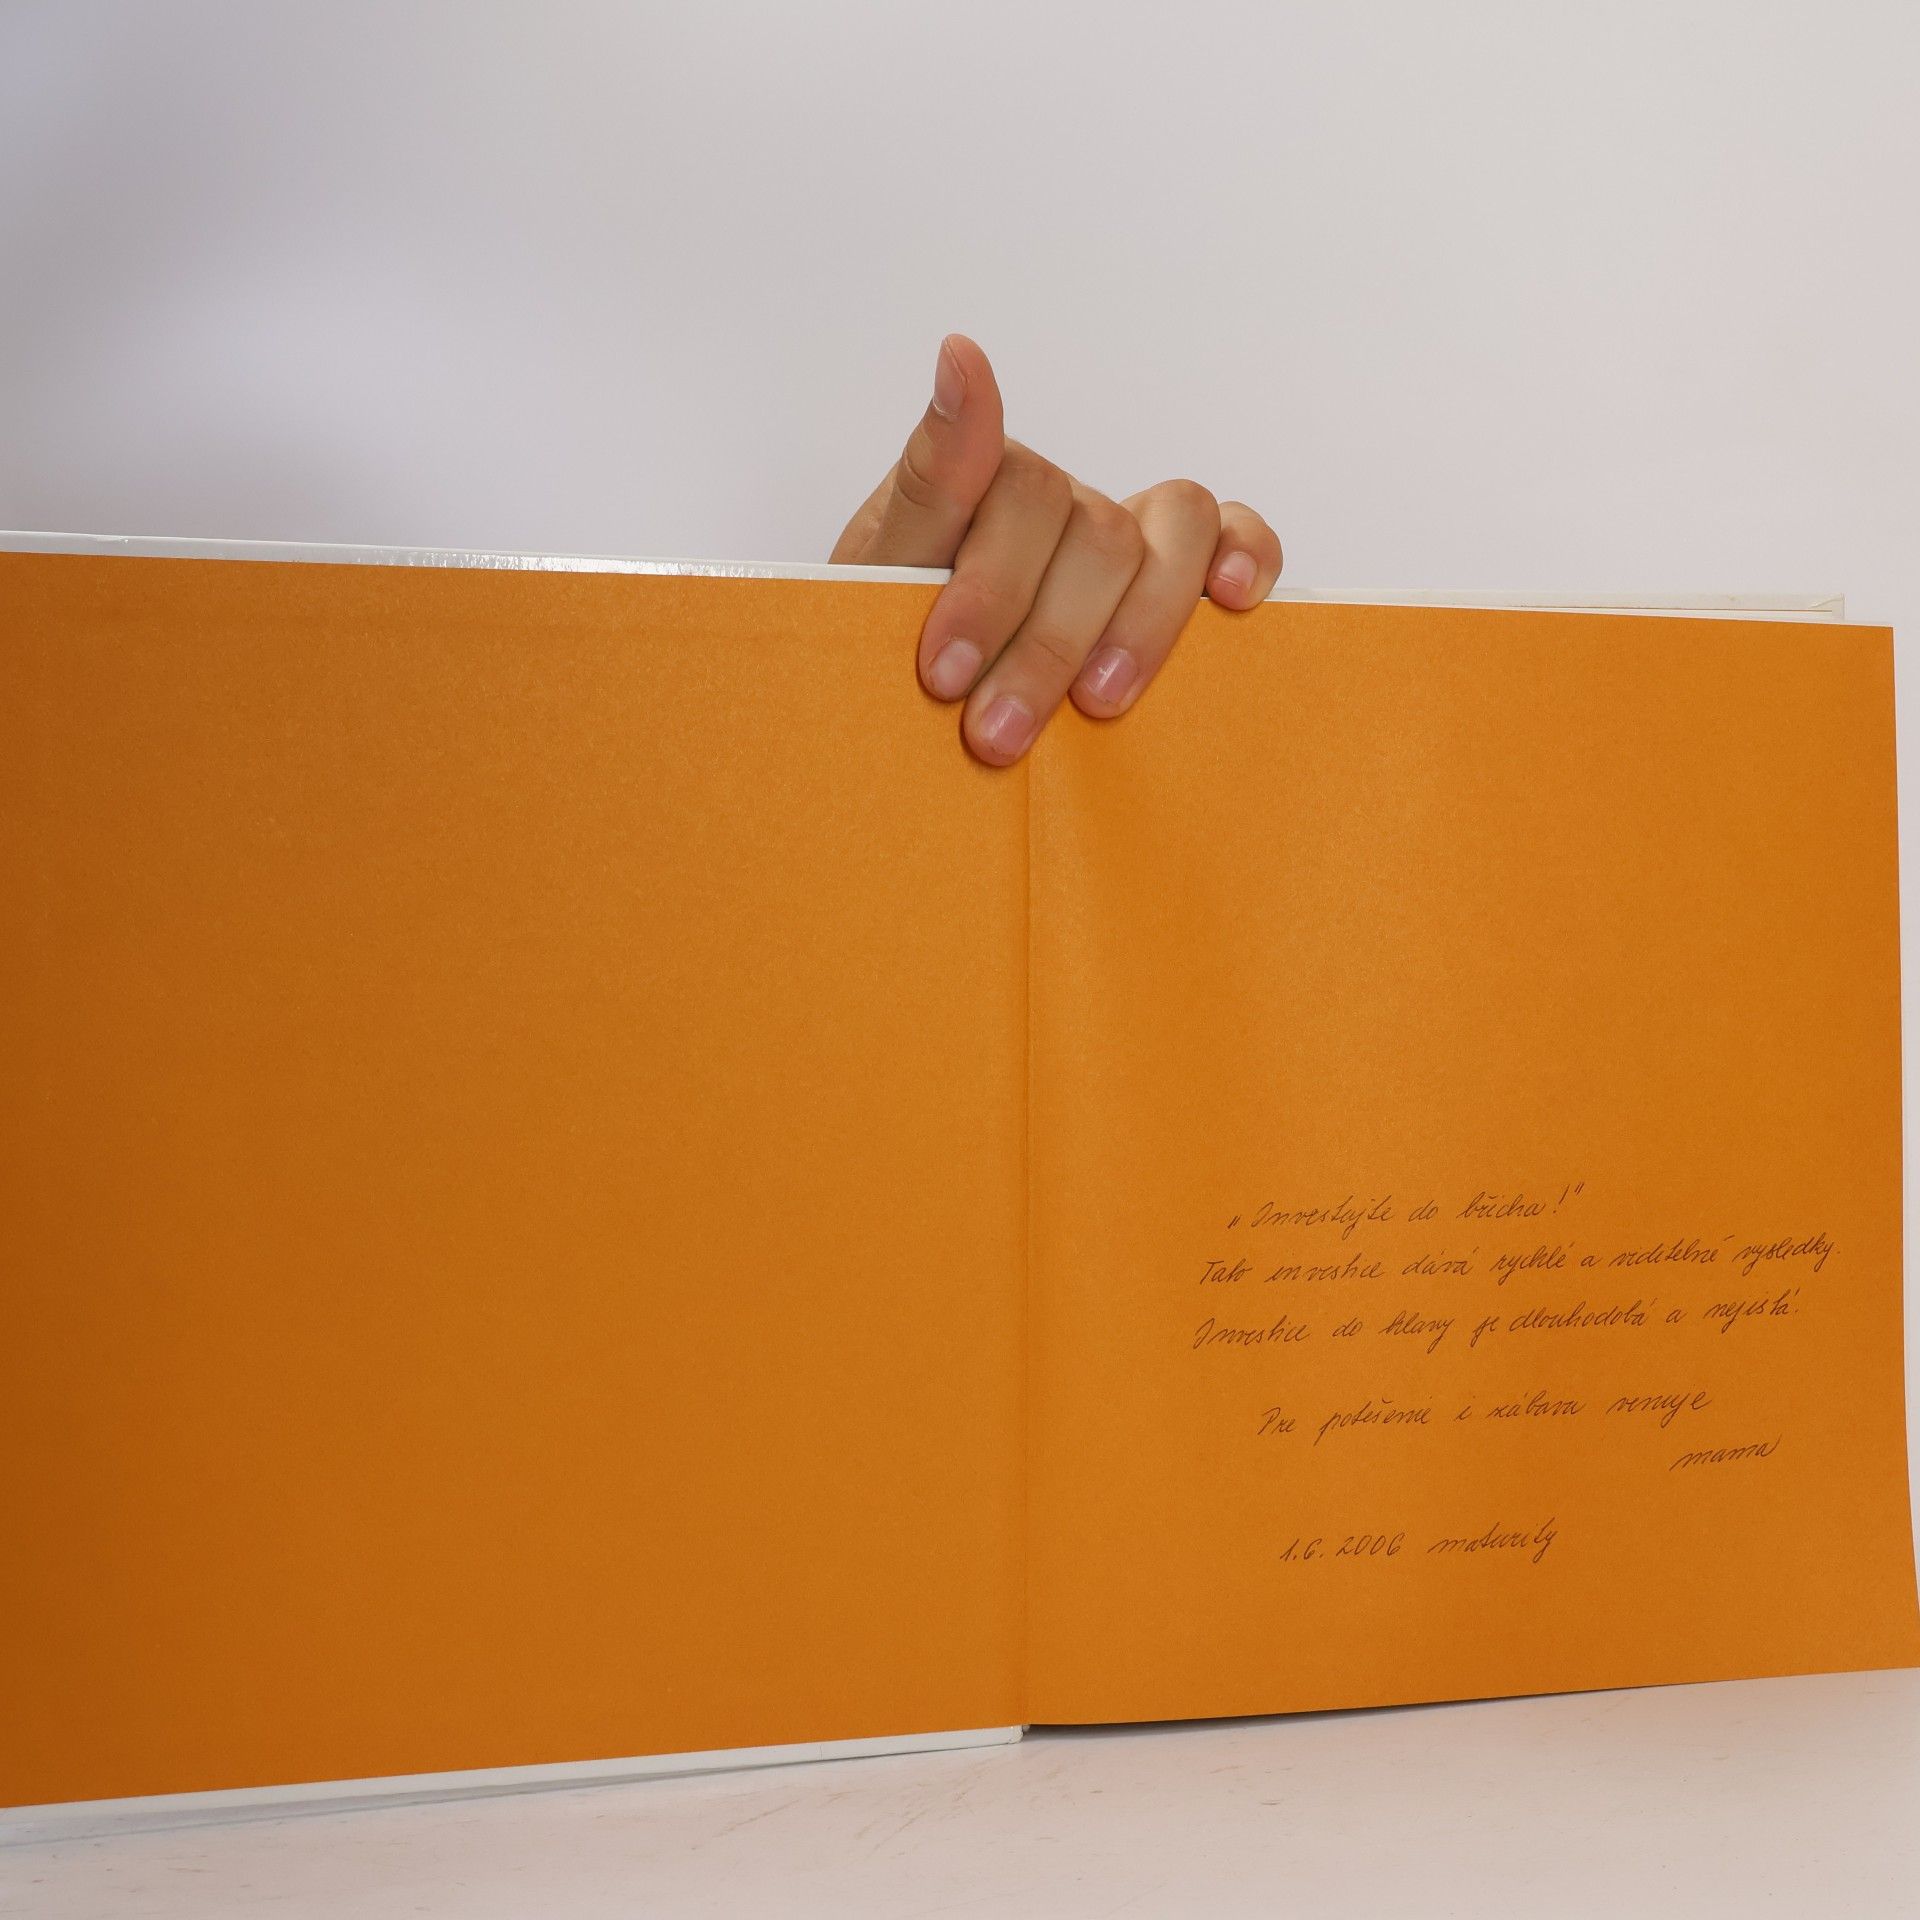 „Investujte do břicha!"
Tato investice dává rychlé a viditelné vysledky.
Investice do hlavy je dlouhodobá a nejistá.
Pre potešenie i zábavu venuje
mama
1.6.2006 maturity